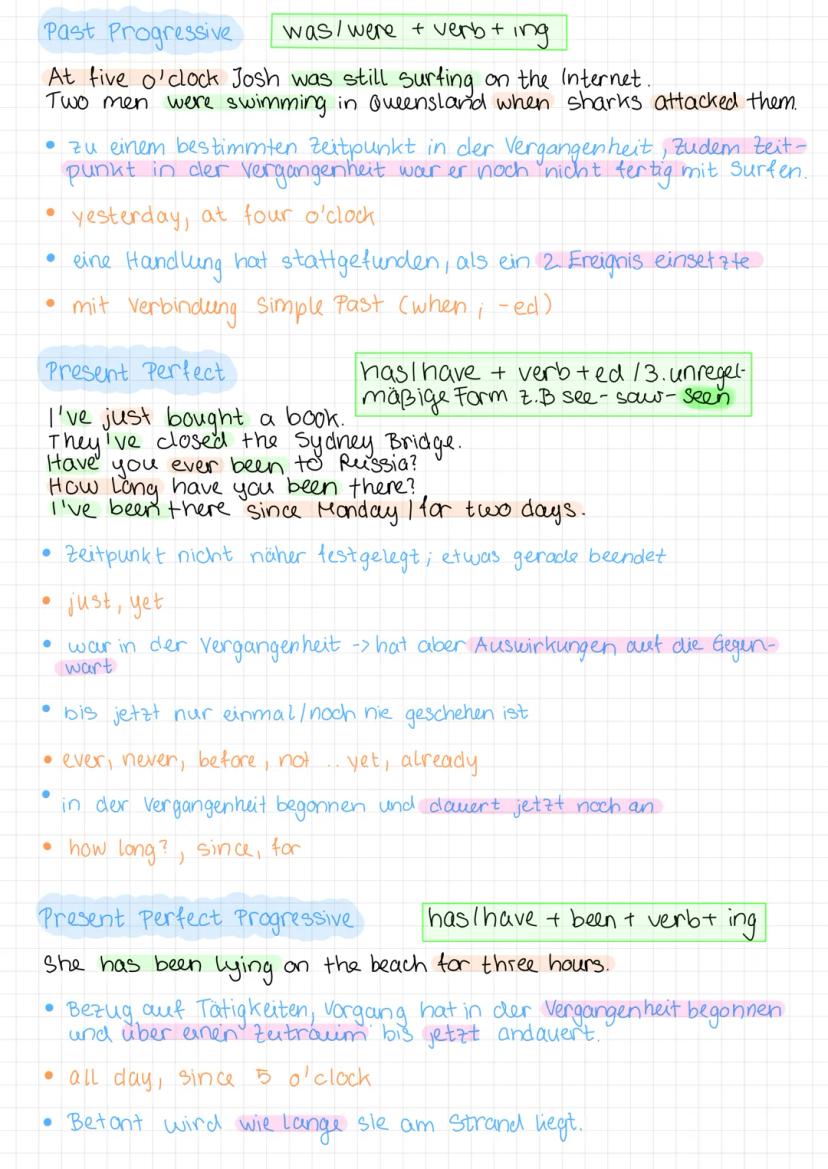 Past Progressive
was/were + verb + ing
At five o'clock Josh was still surfing on the Internet.
Two men were swimming in Queensland when sharks attacked them.
• zu einem bestimmten Zeitpunkt in der Vergangenheit, zudem Zeit-
punkt in der Vergangenheit war er noch nicht fertig mit Surfen.
• yesterday, at four o'clock
• eine Handlung hat stattgefunden, als ein 2. Ereignis einsetzte
• mit Verbindung Simple Past (when ; -ed)
Present Perfect
has/have + verb + ed / 3. unregel-
mäßige Form z.B see- saw- seen
I've just bought a book.
They've closed the Sydney Bridge.
Have you ever been to Russia?
How long have you been there?
I've been there since Monday / for two days.
• Zeitpunkt nicht näher festgelegt ; etwas gerade beendet
• just, yet
• war in der Vergangenheit -> hat aber Auswirkungen auf die Gegen-
wart
• bis jetzt nur einmal/noch nie geschehen ist
• ever, never, before, not .. yet, already
• in der Vergangenheit begonnen und dauert jetzt noch an
• how long?, since, for
Present Perfect Progressive
has/have + been + verb + ing
She has been lying on the beach for three hours.
• Bezug auf Tätigkeiten, Vorgang hat in der Vergangenheit begonnen
und über einen Zeitraum bis jetzt andauert.
• all day, since 5 o'clock
• Betont wird wie lange sie am Strand liegt.